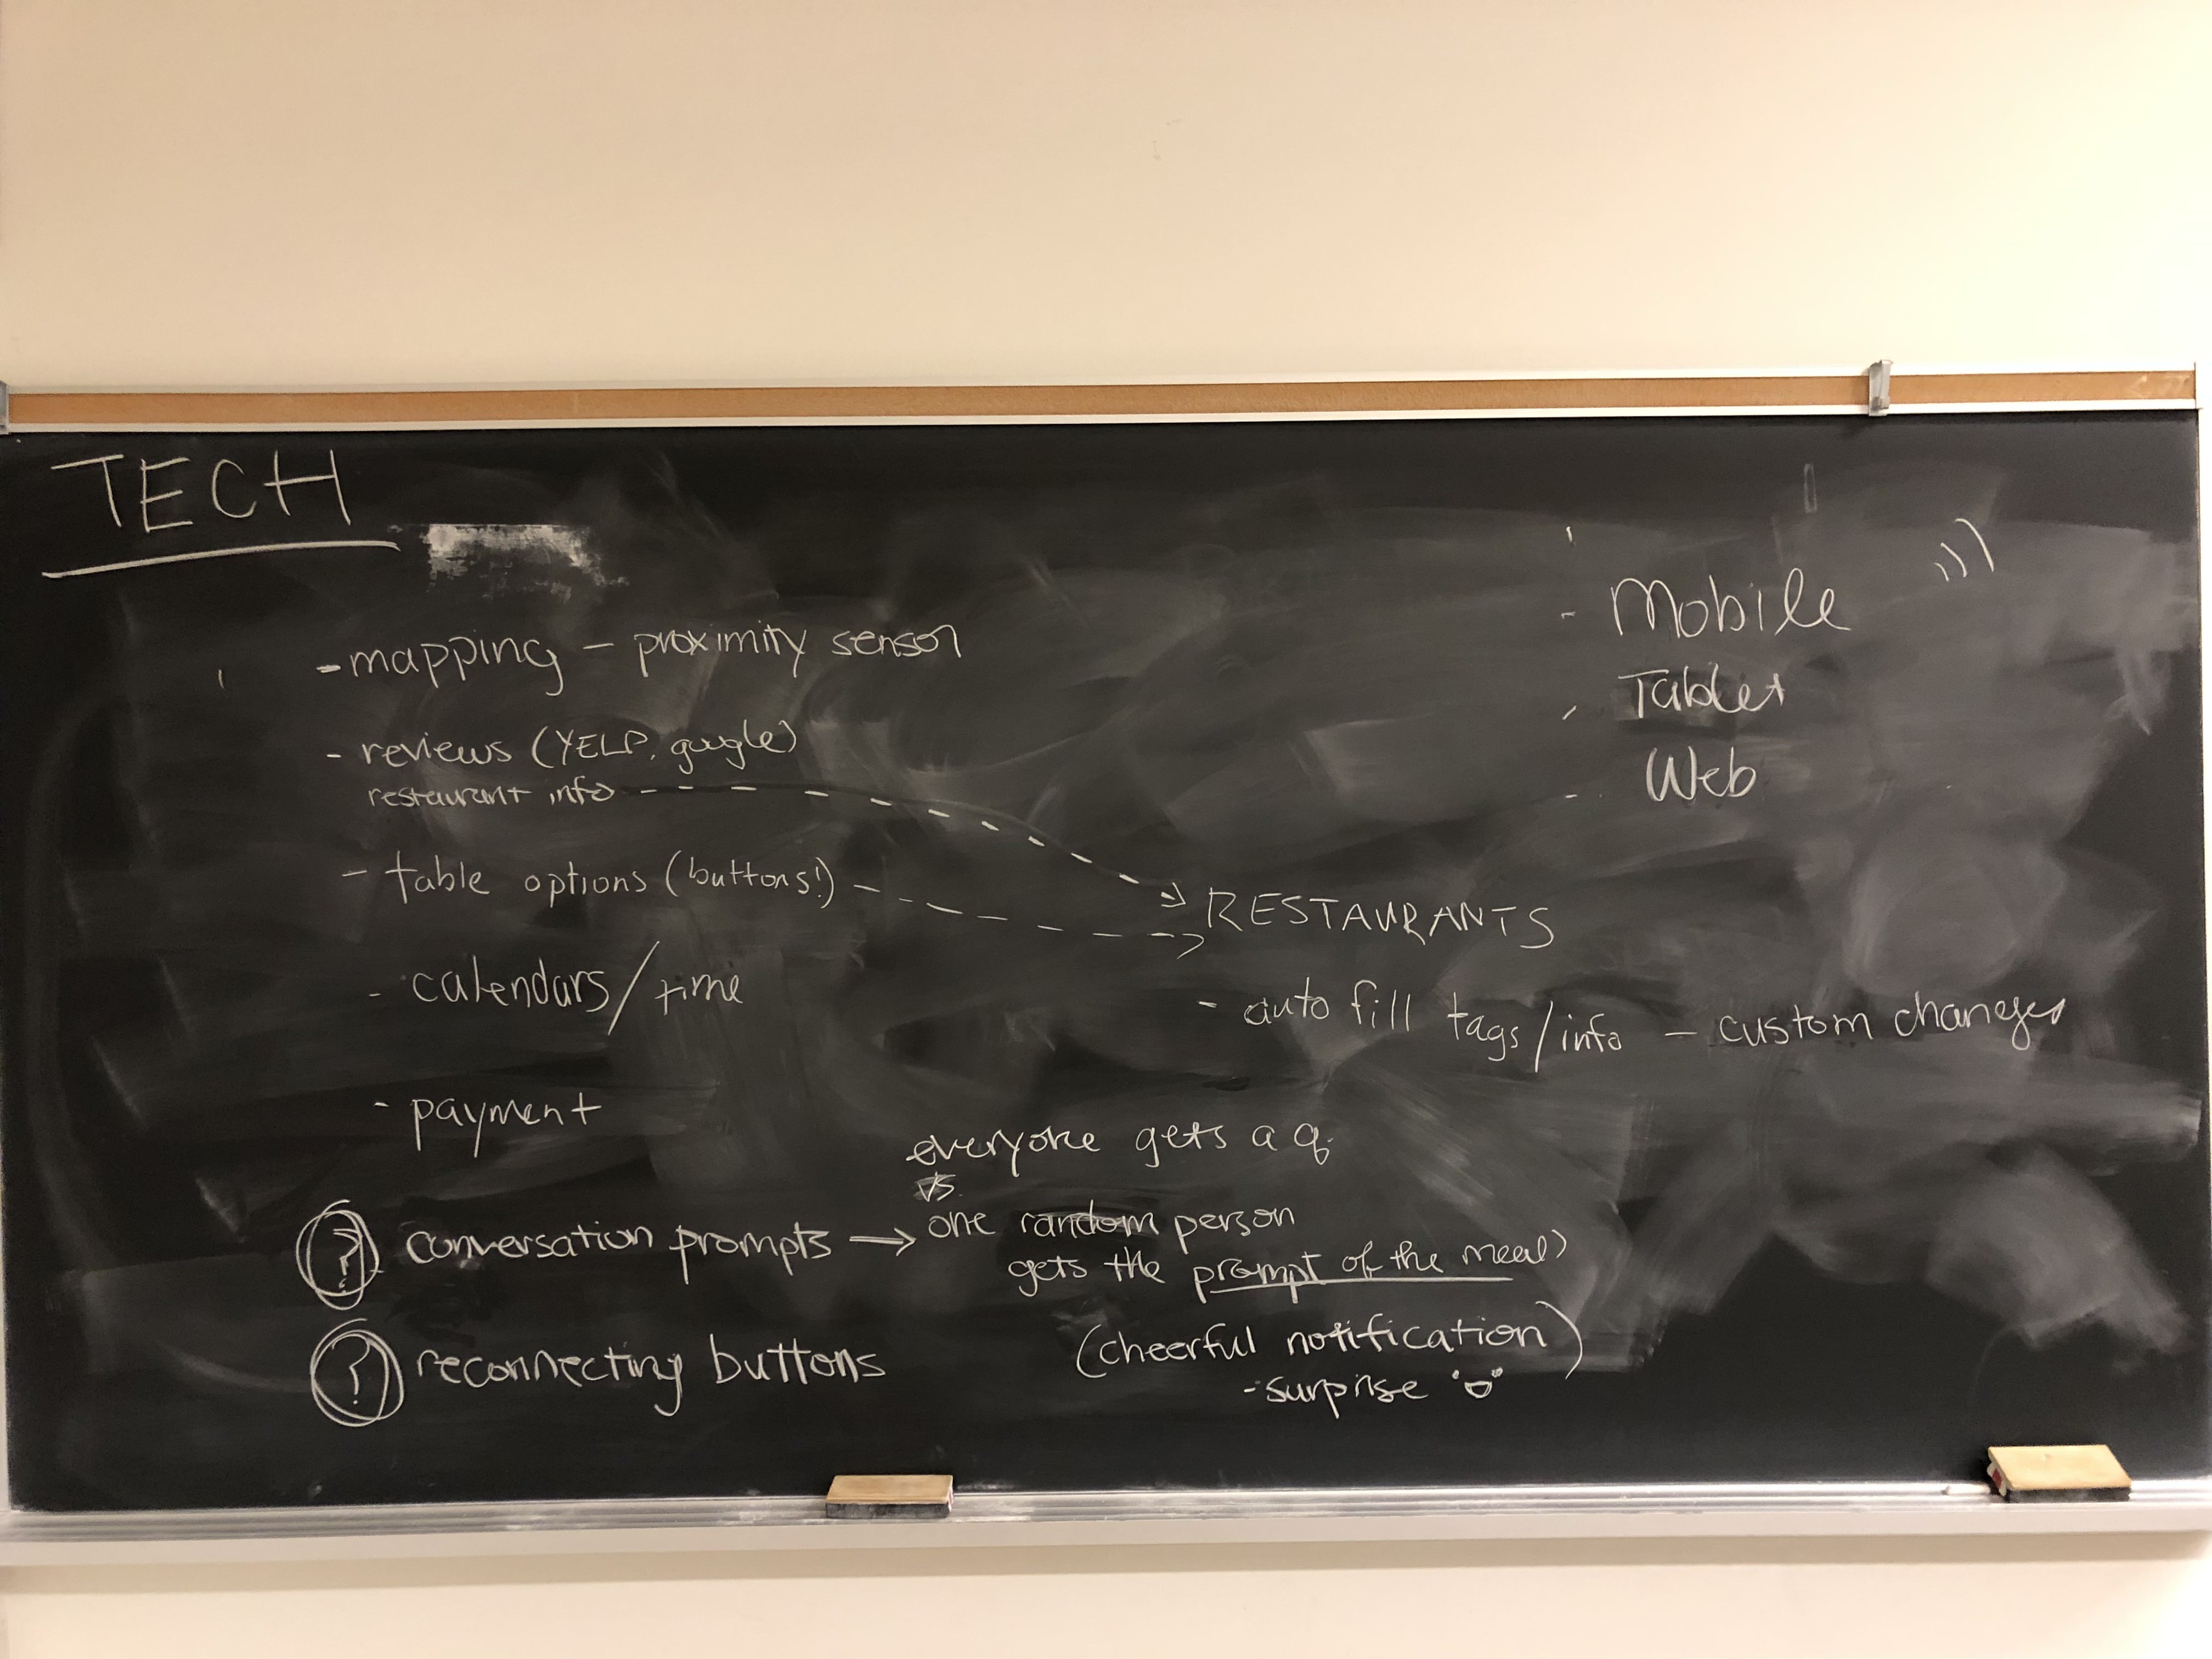 TECH
- mapping - proximity sensor
- reviews (YELP, google)
restaurant info
- table options (buttons!)
- calendars/time
- payment
? conversation prompts → everyone gets a q.
vs
one random person
gets the prompt of the meal
(cheerful notification)
- surprise
? reconnecting buttons
- Mobile
- Tablet
- Web
RESTAURANTS
- auto fill tags/info - custom changes